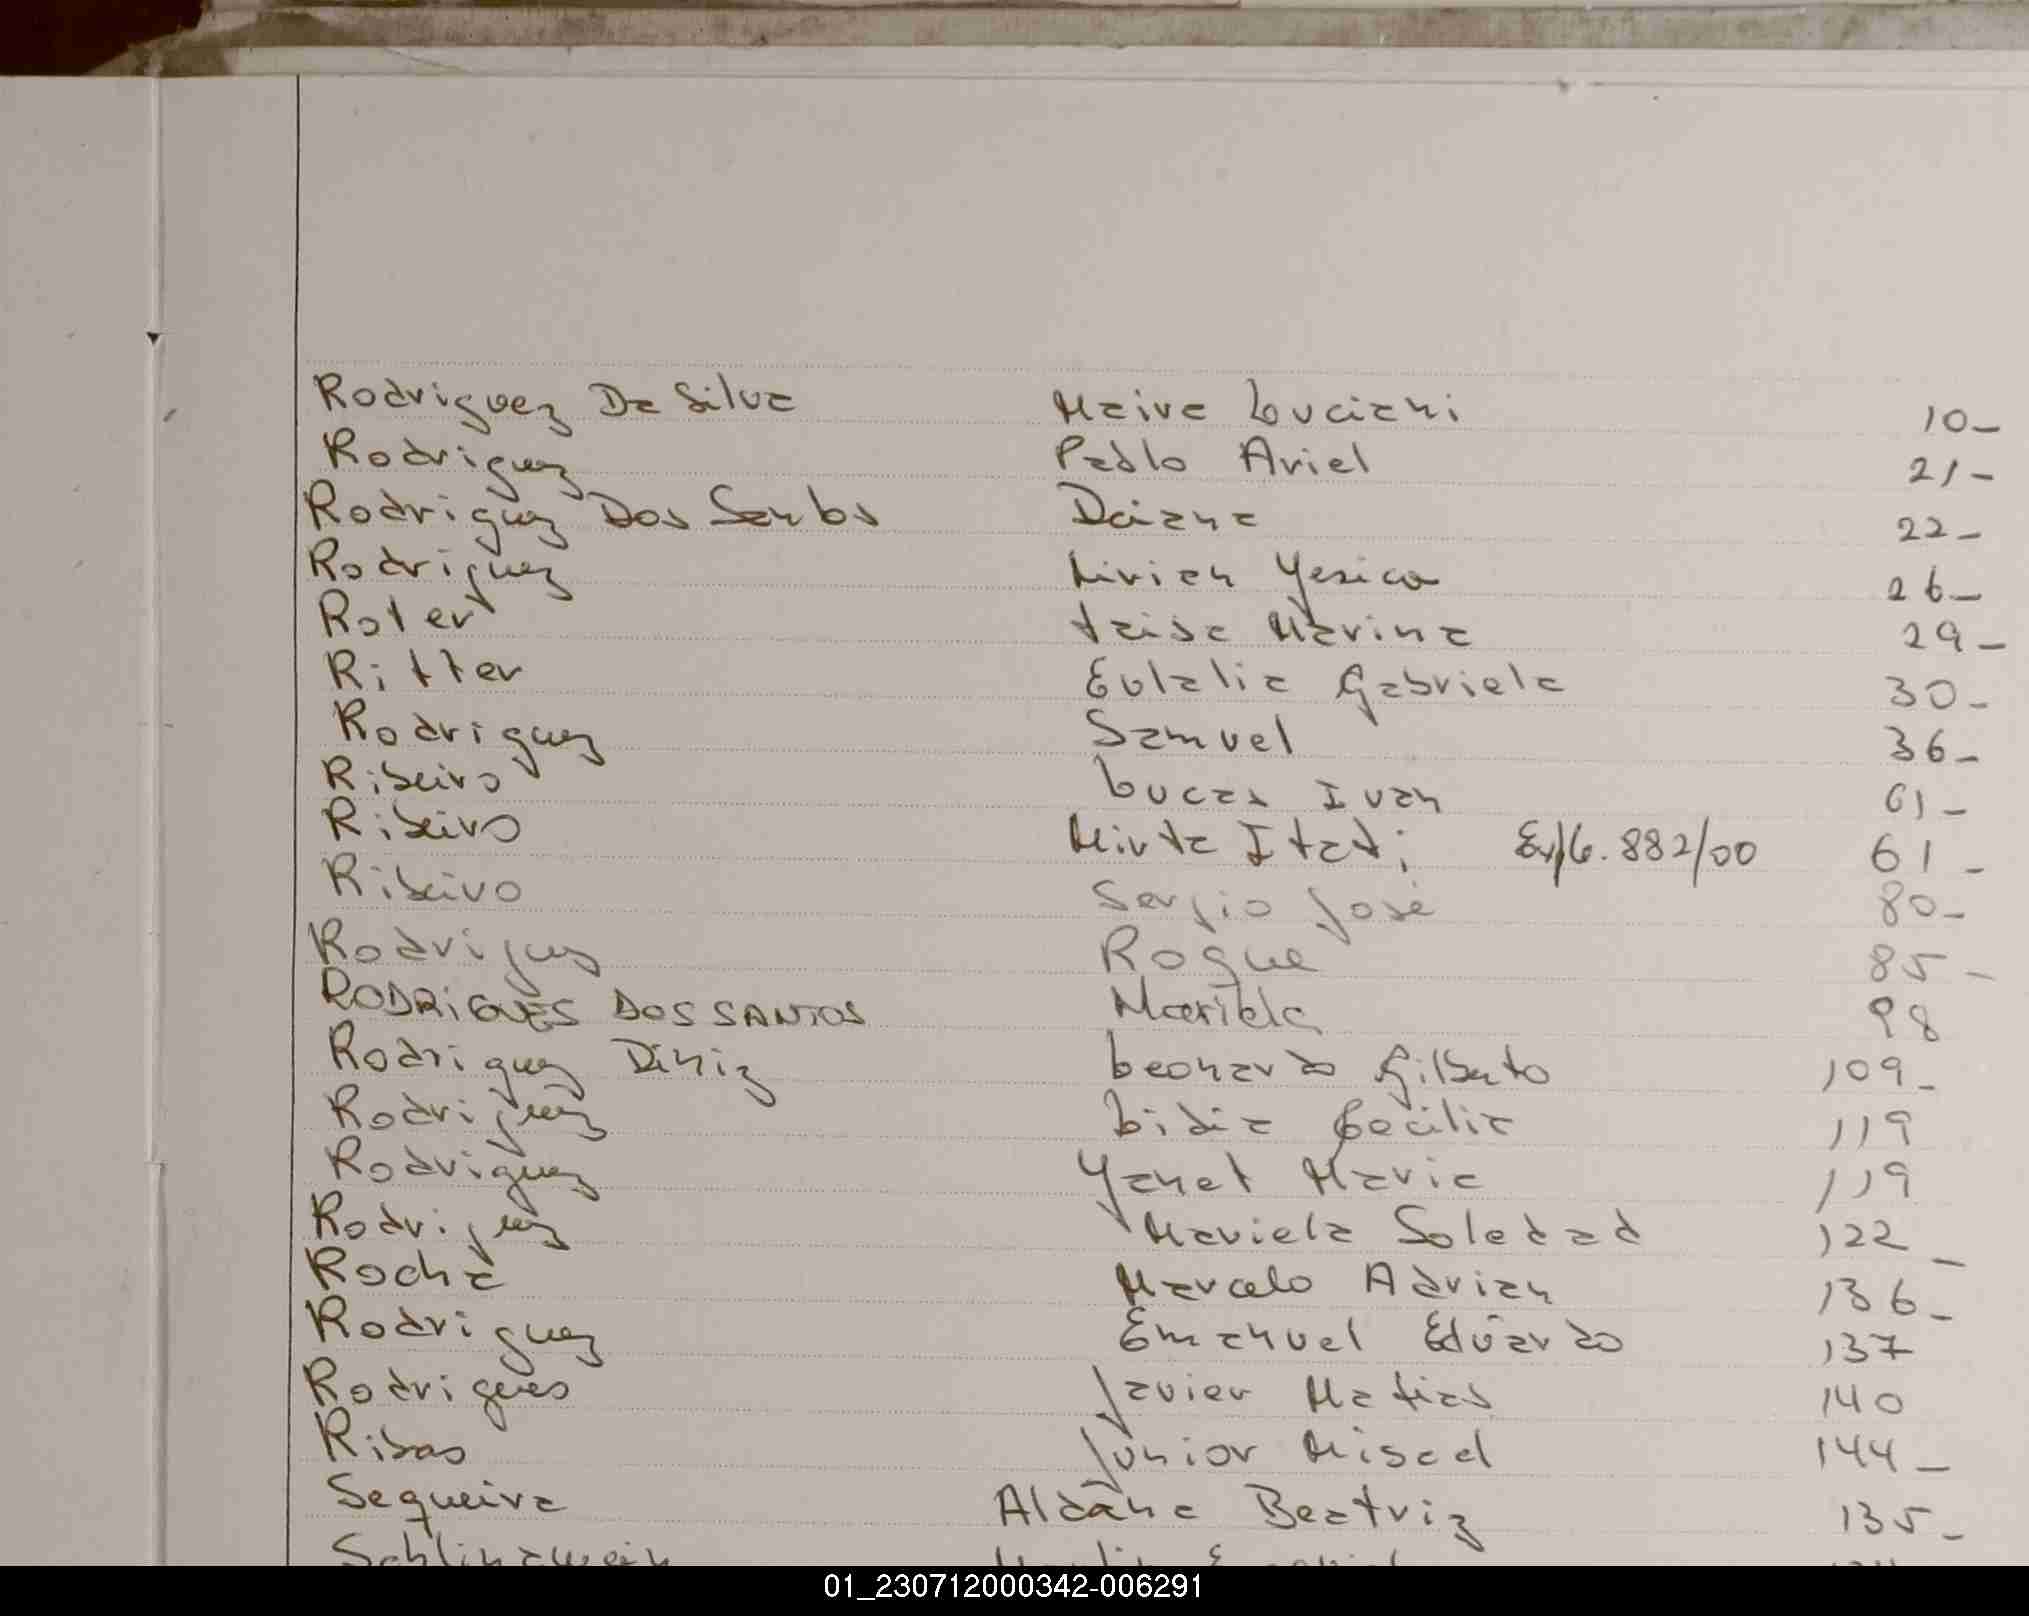 Rodriguez Da Silva Maira Luciani 10-
Rodriguez Pablo Ariel 21-
Rodriguez Dos Santos Daiana 22-
Rodriguez Livian Yesica 26-
Roter Taisa Marina 29-
Ritter Eulalia Gabriela 30-
Rodriguez Samuel 36-
Ribeiro Lucas Ivan 61-
Ribeiro Mirta Itati 6.882/00 61-
Ribeiro Sergio José 80-
Rodriguez Roque 85-
RODRIGUES DOS SANTOS Mariela 98
Rodriguez Diniz Leonardo Gilberto 109-
Rodriguez Lidia Cecilia 119
Rodriguez Yanet Maria 119
Rodriguez Mariela Soledad 122-
Rocha Marcelo Adrian 136-
Rodriguez Emanuel Eduardo 137
Rodrigues Javier Matias 140
Ribas Junior Misael 144-
Sequeira Aldana Beatriz 135-
01_230712000342-006291